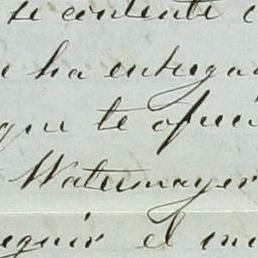 te contente c
ha entregad
que te ofrec
Watermayer
seguir el mi